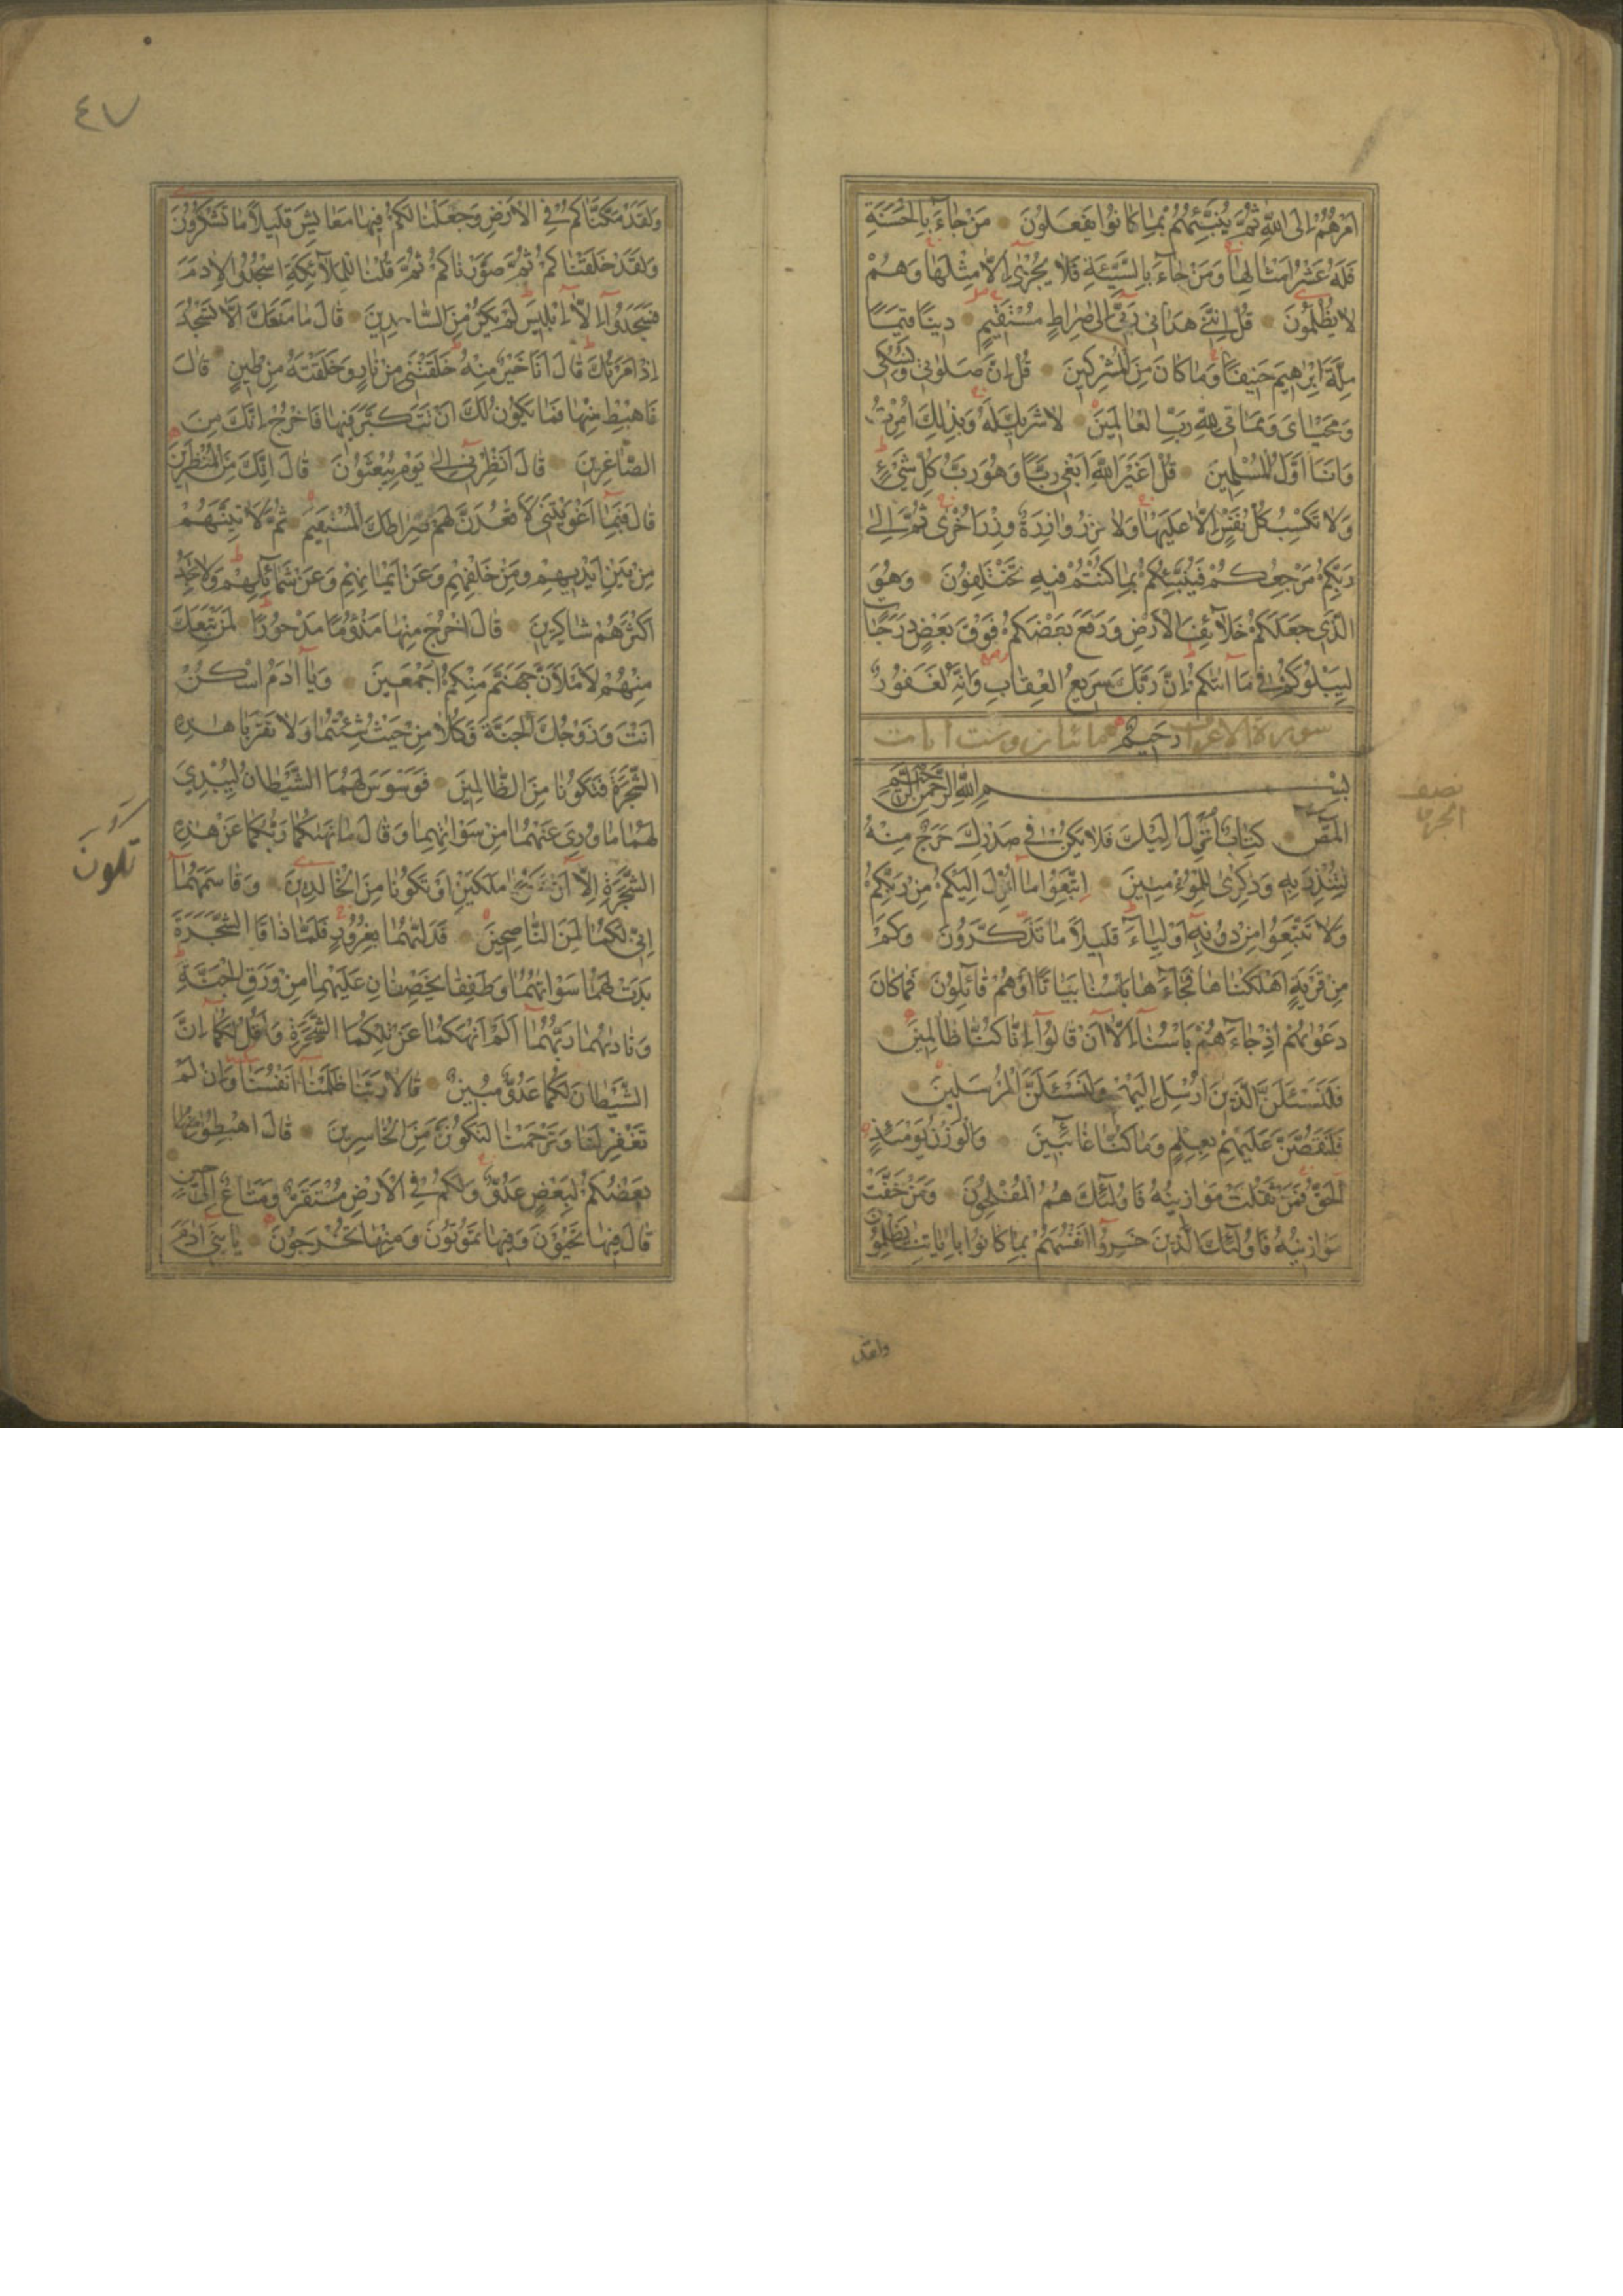 اَمْرُهُمْ اِلَى اللّٰهِ ثُمَّ يُنَبِّئُهُمْ بِمَا كَانُوا يَفْعَلُونَ مَنْ جَاءَ بِالْحَسَنَةِ
فَلَهُ عَشْرُ اَمْثَالِهَا وَمَنْ جَاءَ بِالسَّيِّئَةِ فَلَا يُجْزٰى اِلَّا مِثْلَهَا وَهُمْ
لَا يُظْلَمُونَ قُلْ اِنَّنِي هَدَانِي رَبِّي اِلٰى صِرَاطٍ مُسْتَقِيمٍ دِينًا قِيَمًا
مِلَّةَ اِبْرَاهِيمَ حَنِيفًا وَمَا كَانَ مِنَ الْمُشْرِكِينَ قُلْ اِنَّ صَلَوتِي وَنُسُكِي
وَمَحْيَايَ وَمَمَاتِي لِلّٰهِ رَبِّ الْعَالَمِينَ لَا شَرِيكَ لَهُ وَبِذٰلِكَ اُمِرْتُ
وَاَنَا اَوَّلُ الْمُسْلِمِينَ قُلْ اَغَيْرَ اللّٰهِ اَبْغِي رَبًّا وَهُوَ رَبُّ كُلِّ شَيْءٍ
وَلَا تَكْسِبُ كُلُّ نَفْسٍ اِلَّا عَلَيْهَا وَلَا تَزِرُ وَازِرَةٌ وِزْرَ اُخْرٰى ثُمَّ اِلٰى
رَبِّكُمْ مَرْجِعُكُمْ فَيُنَبِّئُكُمْ بِمَا كُنْتُمْ فِيهِ تَخْتَلِفُونَ وَهُوَ
الَّذِي جَعَلَكُمْ خَلَائِفَ الْاَرْضِ وَرَفَعَ بَعْضَكُمْ فَوْقَ بَعْضٍ دَرَجَاتٍ
لِيَبْلُوَكُمْ فِي مَا اٰتٰيكُمْ اِنَّ رَبَّكَ سَرِيعُ الْعِقَابِ وَاِنَّهُ لَغَفُورٌ
سورة الاعراف رَحِيمٌ مائتان وست ايات
بِسْمِ اللّٰهِ الرَّحْمٰنِ الرَّحِيمِ
الٓمٓصٓ كِتَابٌ اُنْزِلَ اِلَيْكَ فَلَا يَكُنْ فِي صَدْرِكَ حَرَجٌ مِنْهُ
لِتُنْذِرَ بِهِ وَذِكْرٰى لِلْمُؤْمِنِينَ اِتَّبِعُوا مَا اُنْزِلَ اِلَيْكُمْ مِنْ رَبِّكُمْ
وَلَا تَتَّبِعُوا مِنْ دُونِهِ اَوْلِيَاءَ قَلِيلًا مَا تَذَكَّرُونَ وَكَمْ
مِنْ قَرْيَةٍ اَهْلَكْنَاهَا فَجَاءَهَا بَاْسُنَا بَيَاتًا اَوْ هُمْ قَائِلُونَ فَمَا كَانَ
دَعْوٰيهُمْ اِذْ جَاءَهُمْ بَاْسُنَا اِلَّا اَنْ قَالُوا اِنَّا كُنَّا ظَالِمِينَ
فَلَنَسْئَلَنَّ الَّذِينَ اُرْسِلَ اِلَيْهِمْ وَلَنَسْئَلَنَّ الْمُرْسَلِينَ
فَلَنَقُصَّنَّ عَلَيْهِمْ بِعِلْمٍ وَمَا كُنَّا غَائِبِينَ وَالْوَزْنُ يَوْمَئِذٍ
الْحَقُّ فَمَنْ ثَقُلَتْ مَوَازِينُهُ فَاُولٰئِكَ هُمُ الْمُفْلِحُونَ وَمَنْ خَفَّتْ
مَوَازِينُهُ فَاُولٰئِكَ الَّذِينَ خَسِرُوا اَنْفُسَهُمْ بِمَا كَانُوا بِاٰيَاتِنَا يَظْلِمُونَ
ولقد
نصف
الجزء
٤٧
وَلَقَدْ مَكَّنَّاكُمْ فِي الْاَرْضِ وَجَعَلْنَا لَكُمْ فِيهَا مَعَايِشَ قَلِيلًا مَا تَشْكُرُونَ
وَلَقَدْ خَلَقْنَاكُمْ ثُمَّ صَوَّرْنَاكُمْ ثُمَّ قُلْنَا لِلْمَلَائِكَةِ اسْجُدُوا لِاٰدَمَ
فَسَجَدُوا اِلَّا اِبْلِيسَ لَمْ يَكُنْ مِنَ السَّاجِدِينَ قَالَ مَا مَنَعَكَ اَلَّا تَسْجُدَ
اِذْ اَمَرْتُكَ قَالَ اَنَا خَيْرٌ مِنْهُ خَلَقْتَنِي مِنْ نَارٍ وَخَلَقْتَهُ مِنْ طِينٍ قَالَ
فَاهْبِطْ مِنْهَا فَمَا يَكُونُ لَكَ اَنْ تَتَكَبَّرَ فِيهَا فَاخْرُجْ اِنَّكَ مِنَ
الصَّاغِرِينَ قَالَ اَنْظِرْنِي اِلٰى يَوْمِ يُبْعَثُونَ قَالَ اِنَّكَ مِنَ الْمُنْظَرِينَ
قَالَ فَبِمَا اَغْوَيْتَنِي لَاَقْعُدَنَّ لَهُمْ صِرَاطَكَ الْمُسْتَقِيمَ ثُمَّ لَاٰتِيَنَّهُمْ
مِنْ بَيْنِ اَيْدِيهِمْ وَمِنْ خَلْفِهِمْ وَعَنْ اَيْمَانِهِمْ وَعَنْ شَمَائِلِهِمْ وَلَا تَجِدُ
اَكْثَرَهُمْ شَاكِرِينَ قَالَ اخْرُجْ مِنْهَا مَذْؤُمًا مَدْحُورًا لَمَنْ تَبِعَكَ
مِنْهُمْ لَاَمْلَاَنَّ جَهَنَّمَ مِنْكُمْ اَجْمَعِينَ وَيَا اٰدَمُ اسْكُنْ
اَنْتَ وَزَوْجُكَ الْجَنَّةَ فَكُلَا مِنْ حَيْثُ شِئْتُمَا وَلَا تَقْرَبَا هٰذِهِ
الشَّجَرَةَ فَتَكُونَا مِنَ الظَّالِمِينَ فَوَسْوَسَ لَهُمَا الشَّيْطَانُ لِيُبْدِيَ
لَهُمَا مَا وُرِيَ عَنْهُمَا مِنْ سَوْاٰتِهِمَا وَقَالَ مَا نَهٰيكُمَا رَبُّكُمَا عَنْ هٰذِهِ
الشَّجَرَةِ اِلَّا اَنْ مَلَكَيْنِ اَوْ تَكُونَا مِنَ الْخَالِدِينَ وَقَاسَمَهُمَا
اِنِّي لَكُمَا لَمِنَ النَّاصِحِينَ فَدَلّٰيهُمَا بِغُرُورٍ فَلَمَّا ذَاقَا الشَّجَرَةَ
بَدَتْ لَهُمَا سَوْاٰتُهُمَا وَطَفِقَا يَخْصِفَانِ عَلَيْهِمَا مِنْ وَرَقِ الْجَنَّةِ
وَنَادٰيهُمَا رَبُّهُمَا اَلَمْ اَنْهَكُمَا عَنْ تِلْكُمَا الشَّجَرَةِ وَاَقُلْ لَكُمَا اِنَّ
الشَّيْطَانَ لَكُمَا عَدُوٌّ مُبِينٌ قَالَا رَبَّنَا ظَلَمْنَا اَنْفُسَنَا وَاِنْ لَمْ
تَغْفِرْ لَنَا وَتَرْحَمْنَا لَنَكُونَنَّ مِنَ الْخَاسِرِينَ قَالَ اهْبِطُوا
بَعْضُكُمْ لِبَعْضٍ عَدُوٌّ وَلَكُمْ فِي الْاَرْضِ مُسْتَقَرٌّ وَمَتَاعٌ اِلٰى حِينٍ
قَالَ فِيهَا تَحْيَوْنَ وَفِيهَا تَمُوتُونَ وَمِنْهَا تُخْرَجُونَ يَا بَنِي اٰدَمَ